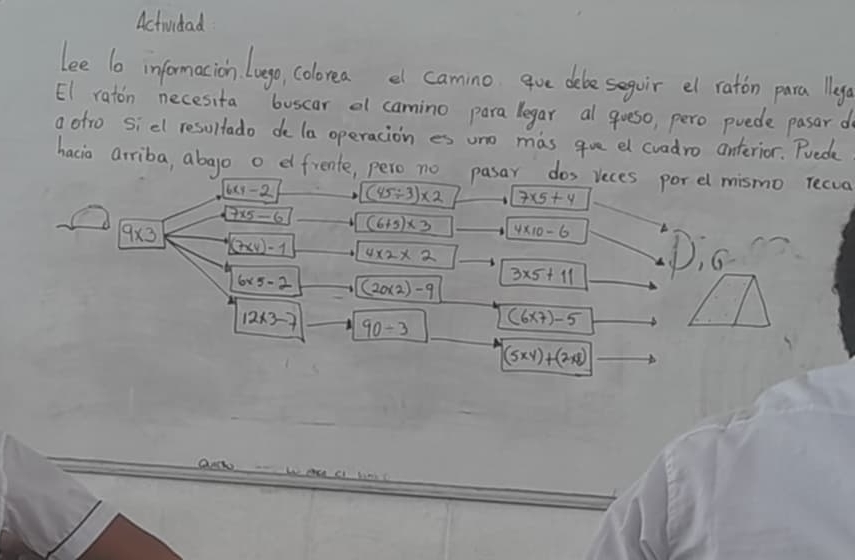 Actividad
Lee la información. Luego, colorea el camino que debe seguir el ratón para llega
El ratón necesita buscar el camino para llegar al queso, pero puede pasar d
a otro si el resultado de la operación es uno más que el cuadro anterior. Puede
hacia arriba, abajo o el frente, pero no pasar dos veces por el mismo recua
6x4-2 (45÷3)x2 7x5+4
9x3 7x5-6 (6+5)x3 4x10-6
(7x4)-1 4x2x2 3x5+11
6x5-2 (20x2)-9 (6x7)-5
12x3-7 90÷3 (5x4)+(2x8)